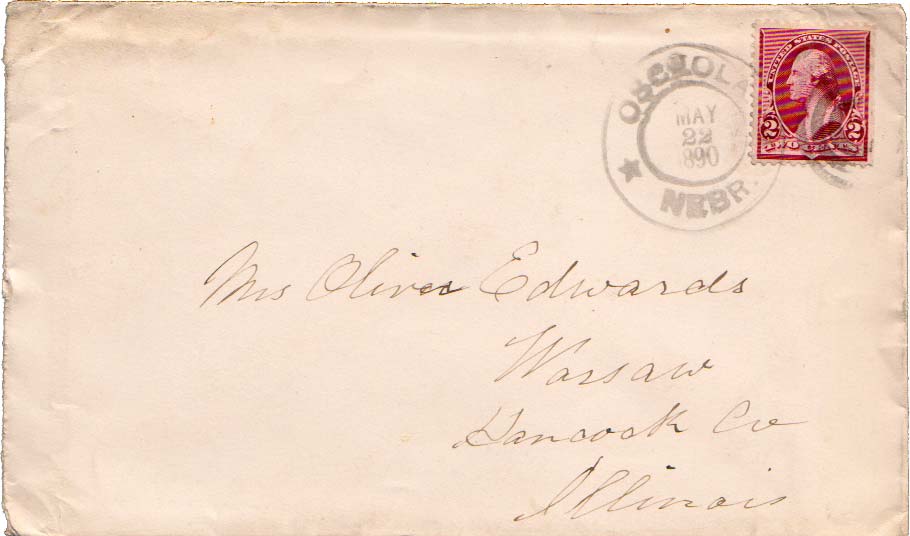 OSCEOLA
MAY
22
1890
NEBR.
UNITED STATES POSTAGE
2 2
TWO CENTS
Mrs Oliver Edwards
Warsaw
Hancock Co
Illinois